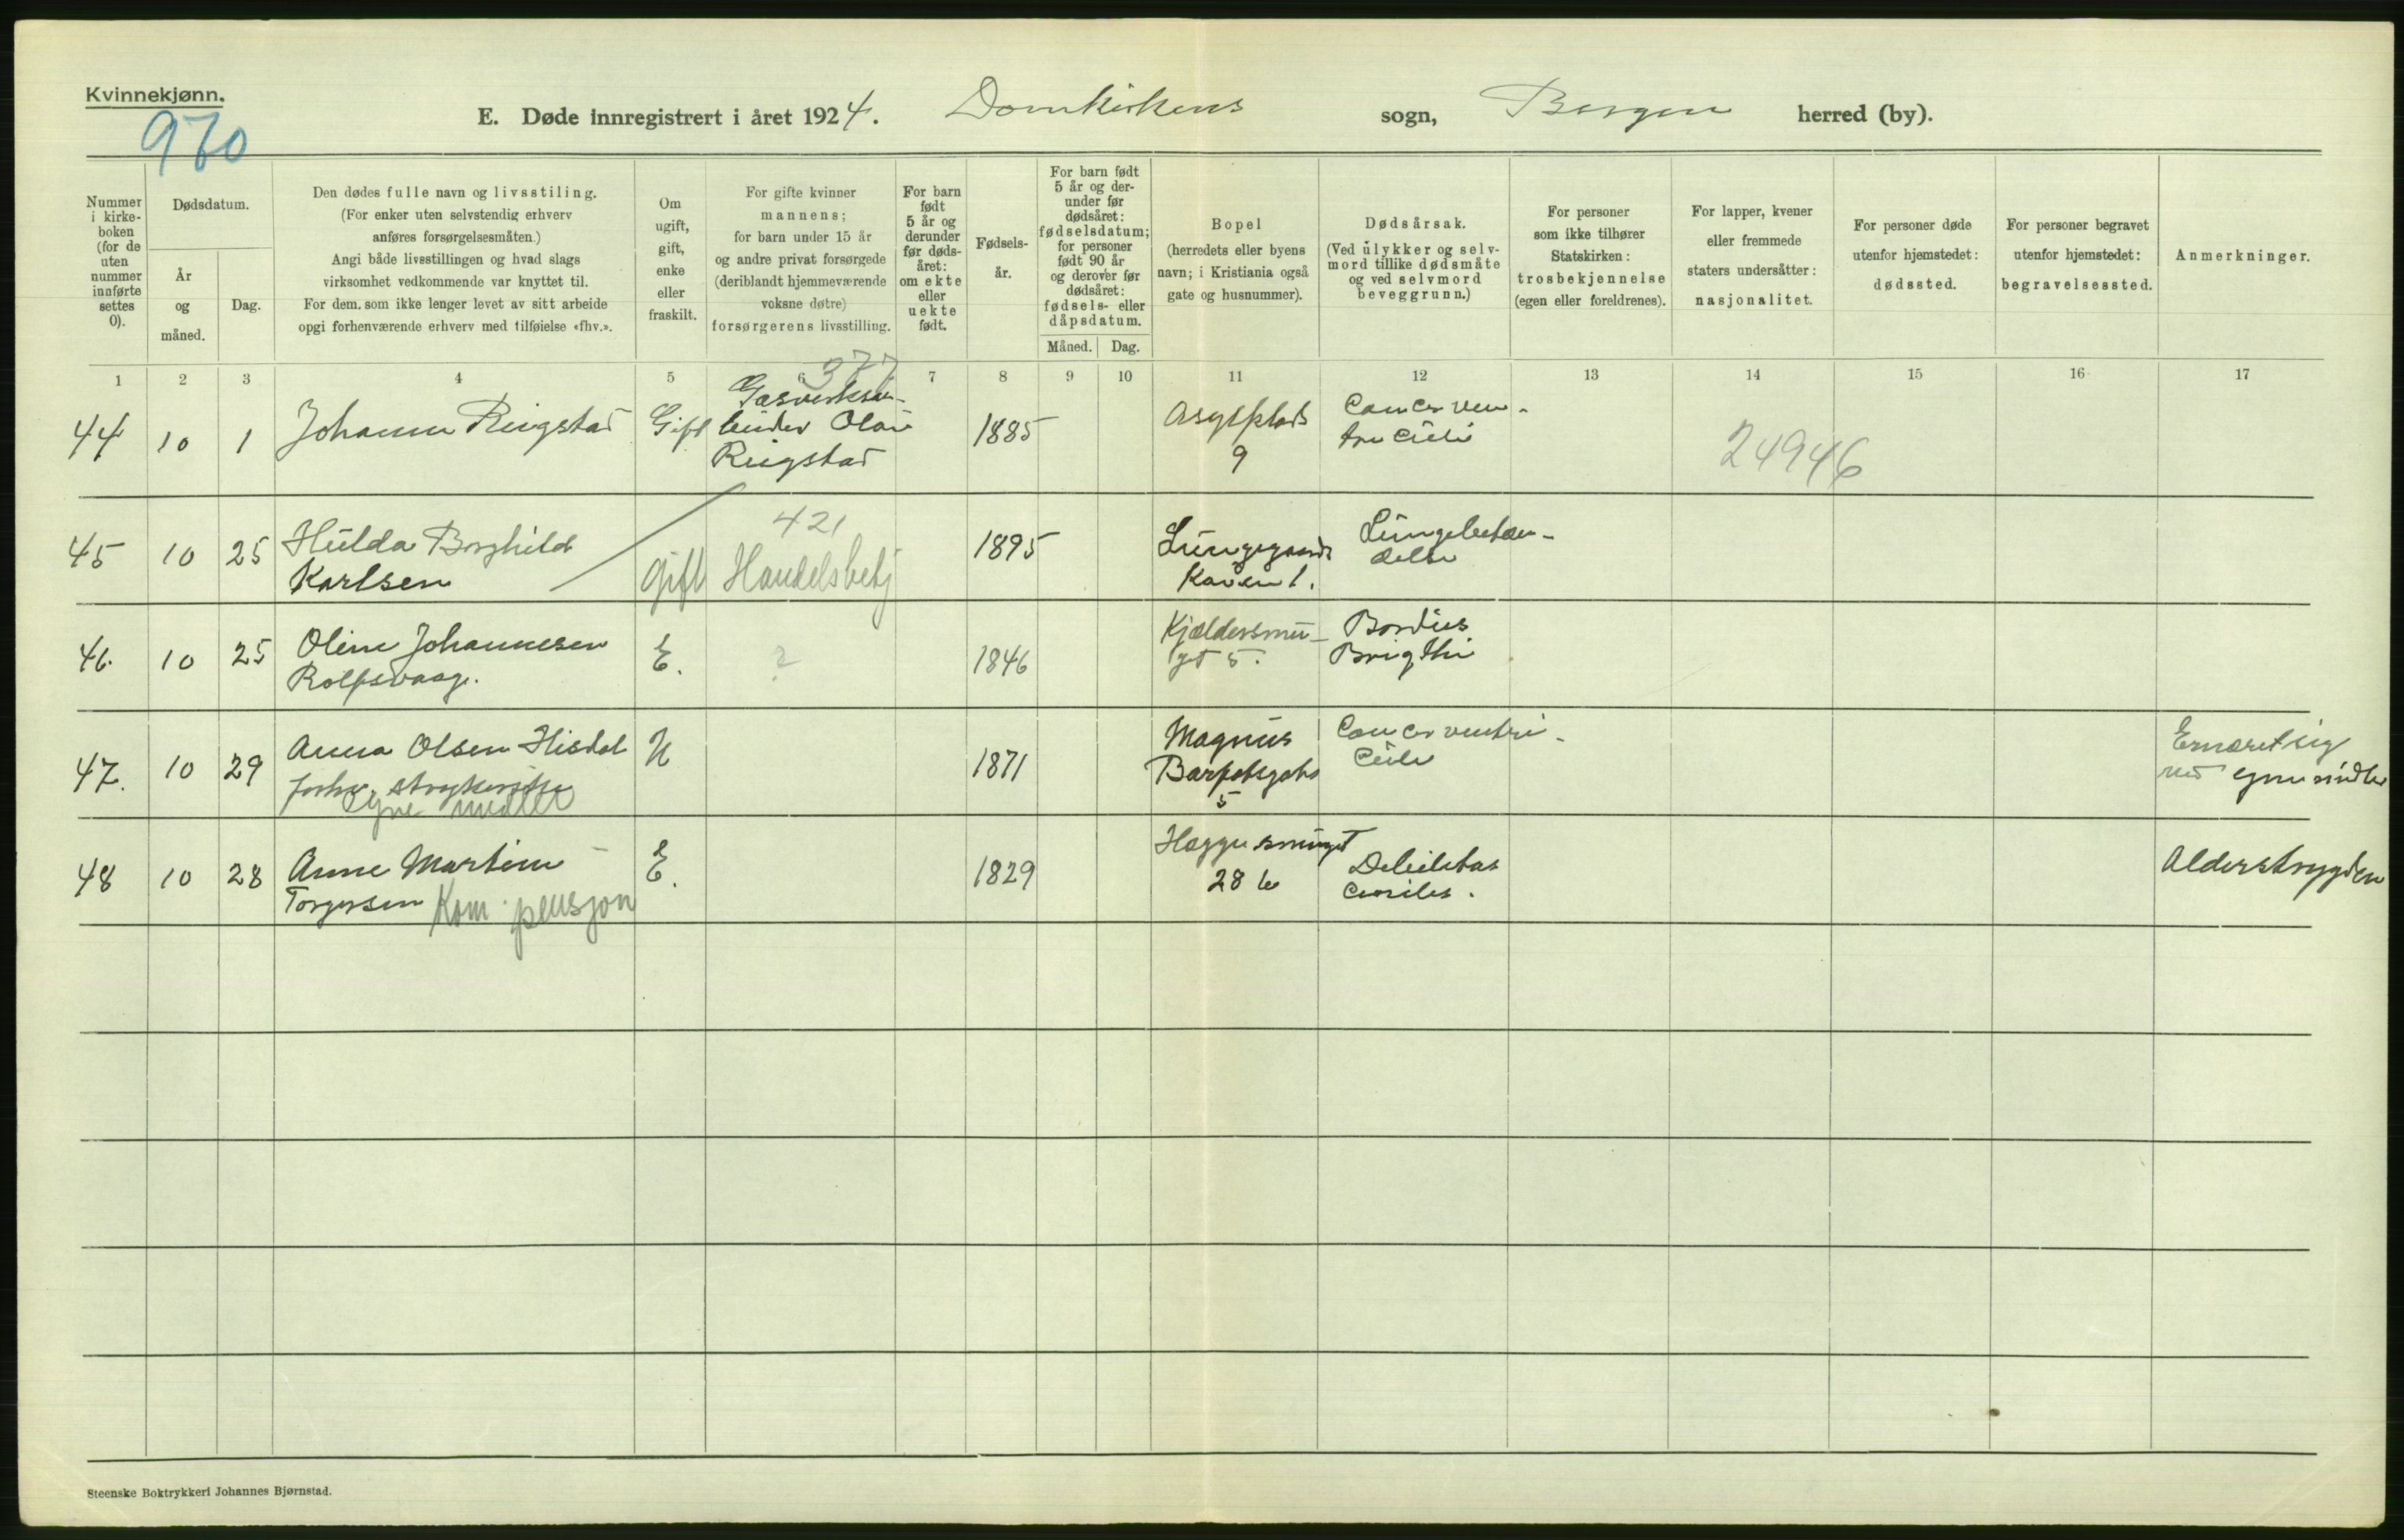 Kvinnekjønn.
970
E. Døde innregistrert i året 1924. Domkirkens sogn, Bergen herred (by).
Nummer i kirke- boken (for de uten nummer innførte settes 0).
Dødsdatum.
År og måned.
Dag.
Den dødes fulle navn og livsstiling.
(For enker uten selvstendig erhverv
anføres forsørgelsesmåten.)
Angi både livsstillingen og hvad slags
virksomhet vedkommende var knyttet til.
For dem, som ikke lenger levet av sitt arbeide
opgi forhenværende erhverv med tilføielse «fhv.».
Om ugift, gift, enke eller fraskilt.
For gifte kvinner
mannens;
for barn under 15 år
og andre privat forsørgede
(deriblandt hjemmeværende
voksne døtre)
forsørgerens livsstilling.
For barn født 5 år og derunder før døds- året: om ekte eller uekte født.
Fødsels- år.
For barn født
5 år og der-
under før
dødsåret:
fødselsdatum;
for personer
født 90 år
og derover før
dødsåret:
fødsels- eller
dåpsdatum.
Måned. Dag.
Bopel
(herredets eller byens
navn; i Kristiania også
gate og husnummer).
Dødsårsak.
(Ved ulykker og selv-
mord tillike dødsmåte
og ved selvmord
beveggrunn.)
For personer
som ikke tilhører
Statskirken:
trosbekjennelse
(egen eller foreldrenes).
For lapper, kvener
eller fremmede
staters undersåtter:
nasjonalitet.
For personer døde
utenfor hjemstedet:
dødssted.
For personer begravet
utenfor hjemstedet:
begravelsessted.
Anmerkninger.
1 2 3 4 5 6 7 8 9 10 11 12 13 14 15 16 17
377
44 10 1 Johanne Ringstad Gift Gasverksar-
beider Olai
Ringstad
1885 Asylplads
9
Cancer ven-
triculi
24946
45 10 25 Hulda Borghild
Karlsen
gift 421
Handelsbetj
1895 Lungegaards
kaien 1.
Lungebetæn-
delse
46. 10 25 Oline Johannesen
Rolfsvaag.
E. ? 1846 Kjeldersmu-
get 5.
Morbus
Brigthi
47. 10 29 Anna Olsen Hisdal
forhv. strykerske
Egne midler
U 1871 Magnus
Barfotsgate
5
Cancer ventri-
culi
Ernæret sig
ved egne midler
48 10 28 Anne Martine
Torgersen Kom. pensjon
E. 1829 Heggesmuget
28 b
Debilitas
senilis.
Alderstrygden
Steenske Boktrykkeri Johannes Bjørnstad.